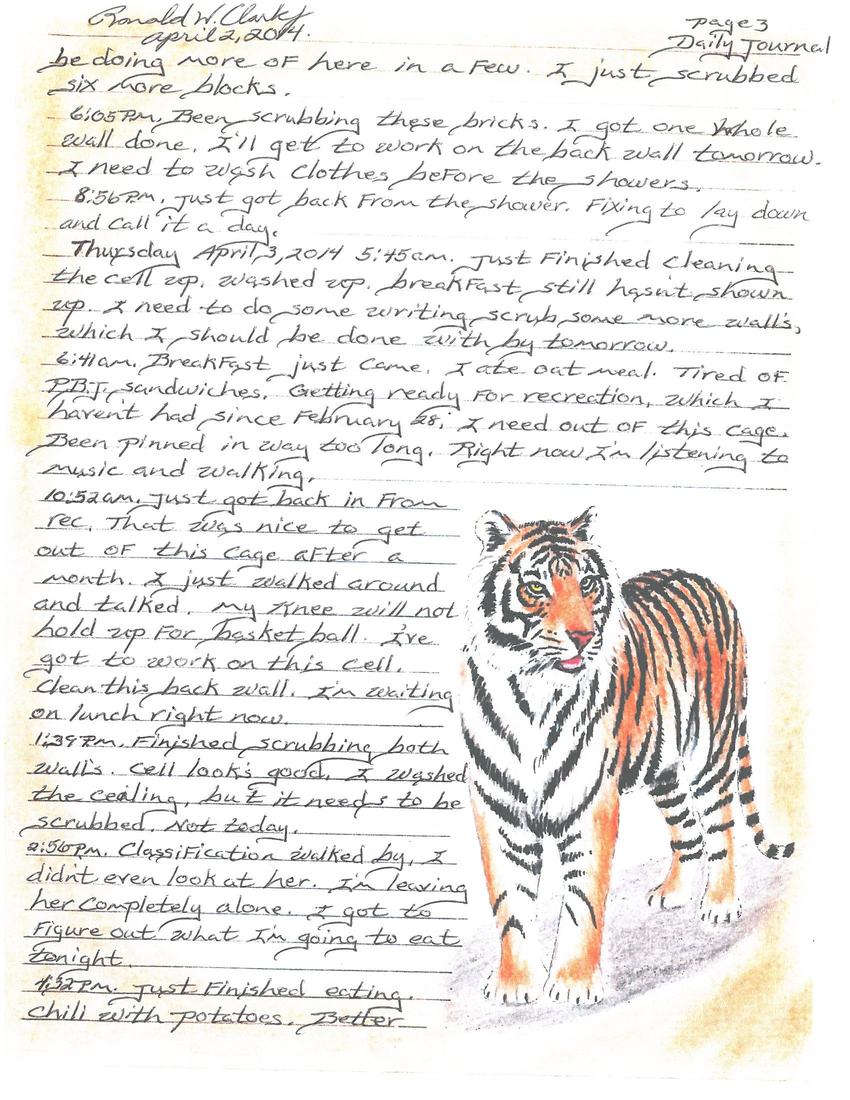 Ronald W. Clark Jr
April 2, 2014.
page 3
Daily Journal
be doing more of here in a few. I just scrubbed
six more blocks.
6:05 PM. Been scrubbing these bricks. I got one whole
wall done. I'll get to work on the back wall tomorrow.
I need to wash clothes before the showers.
8:56 PM. Just got back from the shower. Fixing to lay down
and call it a day.
Thursday April, 3, 2014 5:45am. Just finished cleaning
the cell up. washed up. breakfast still hasn't shown
up. I need to do some writing, scrub some more wall's,
which I should be done with by tomorrow.
6:41am. Breakfast just came. I ate oat meal. Tired of
P.B.J. sandwiches. Getting ready for recreation, which I
haven't had since February 28, I need out of this cage.
Been pinned in way too long. Right now I'm listening to
music and walking.
10:52am. Just got back in from
rec. That was nice to get
out of this cage after a
month. I just walked around
and talked. My knee will not
hold up for basket ball. I've
got to work on this cell.
Clean this back wall. I'm waiting
on lunch right now.
1:39 PM. Finished scrubbing both
wall's. Cell look's good. I washed
the cealing, but it needs to be
scrubbed. Not today.
2:56 PM. Classification walked by, I
didn't even look at her. I'm leaving
her completely alone. I got to
figure out what I'm going to eat
tonight.
4:32 PM. Just finished eating.
Chili with potatoes. Better